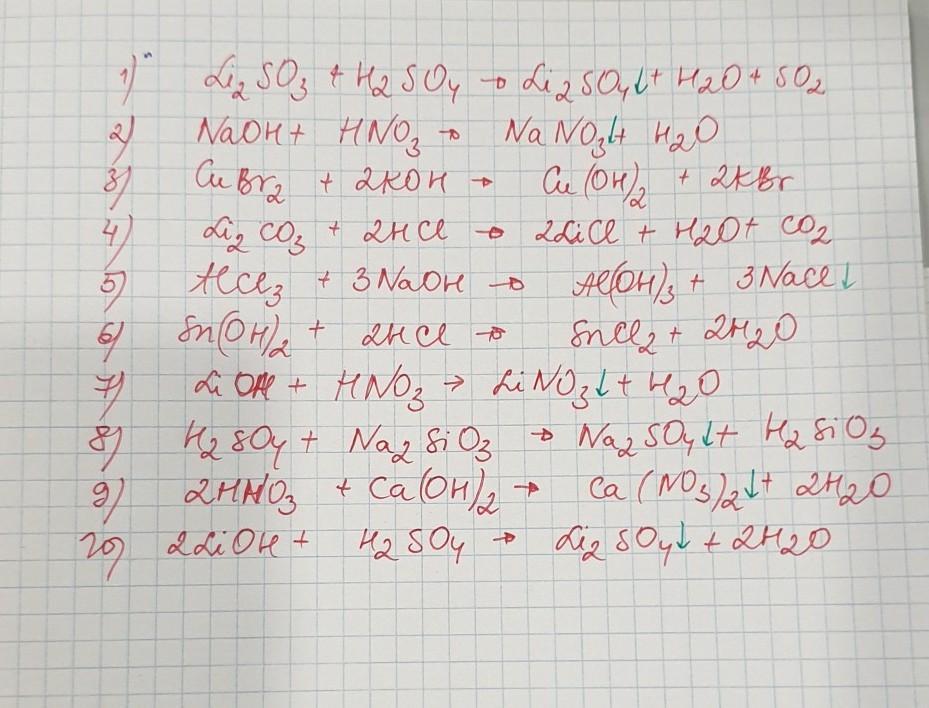 1) Li₂SO₃ + H₂SO₄ → Li₂SO₄↓ + H₂O + SO₂
2) NaOH + HNO₃ → NaNO₃↓ + H₂O
3) CuBr₂ + 2KOH → Cu(OH)₂ + 2KBr
4) Li₂CO₃ + 2HCl → 2LiCl + H₂O + CO₂
5) AlCl₃ + 3NaOH → Al(OH)₃ + 3NaCl↓
6) Sn(OH)₂ + 2HCl → SnCl₂ + 2H₂O
7) LiOH + HNO₃ → LiNO₃↓ + H₂O
8) H₂SO₄ + Na₂SiO₃ → Na₂SO₄↓ + H₂SiO₃
9) 2HNO₃ + Ca(OH)₂ → Ca(NO₃)₂↓ + 2H₂O
10) 2LiOH + H₂SO₄ → Li₂SO₄↓ + 2H₂O